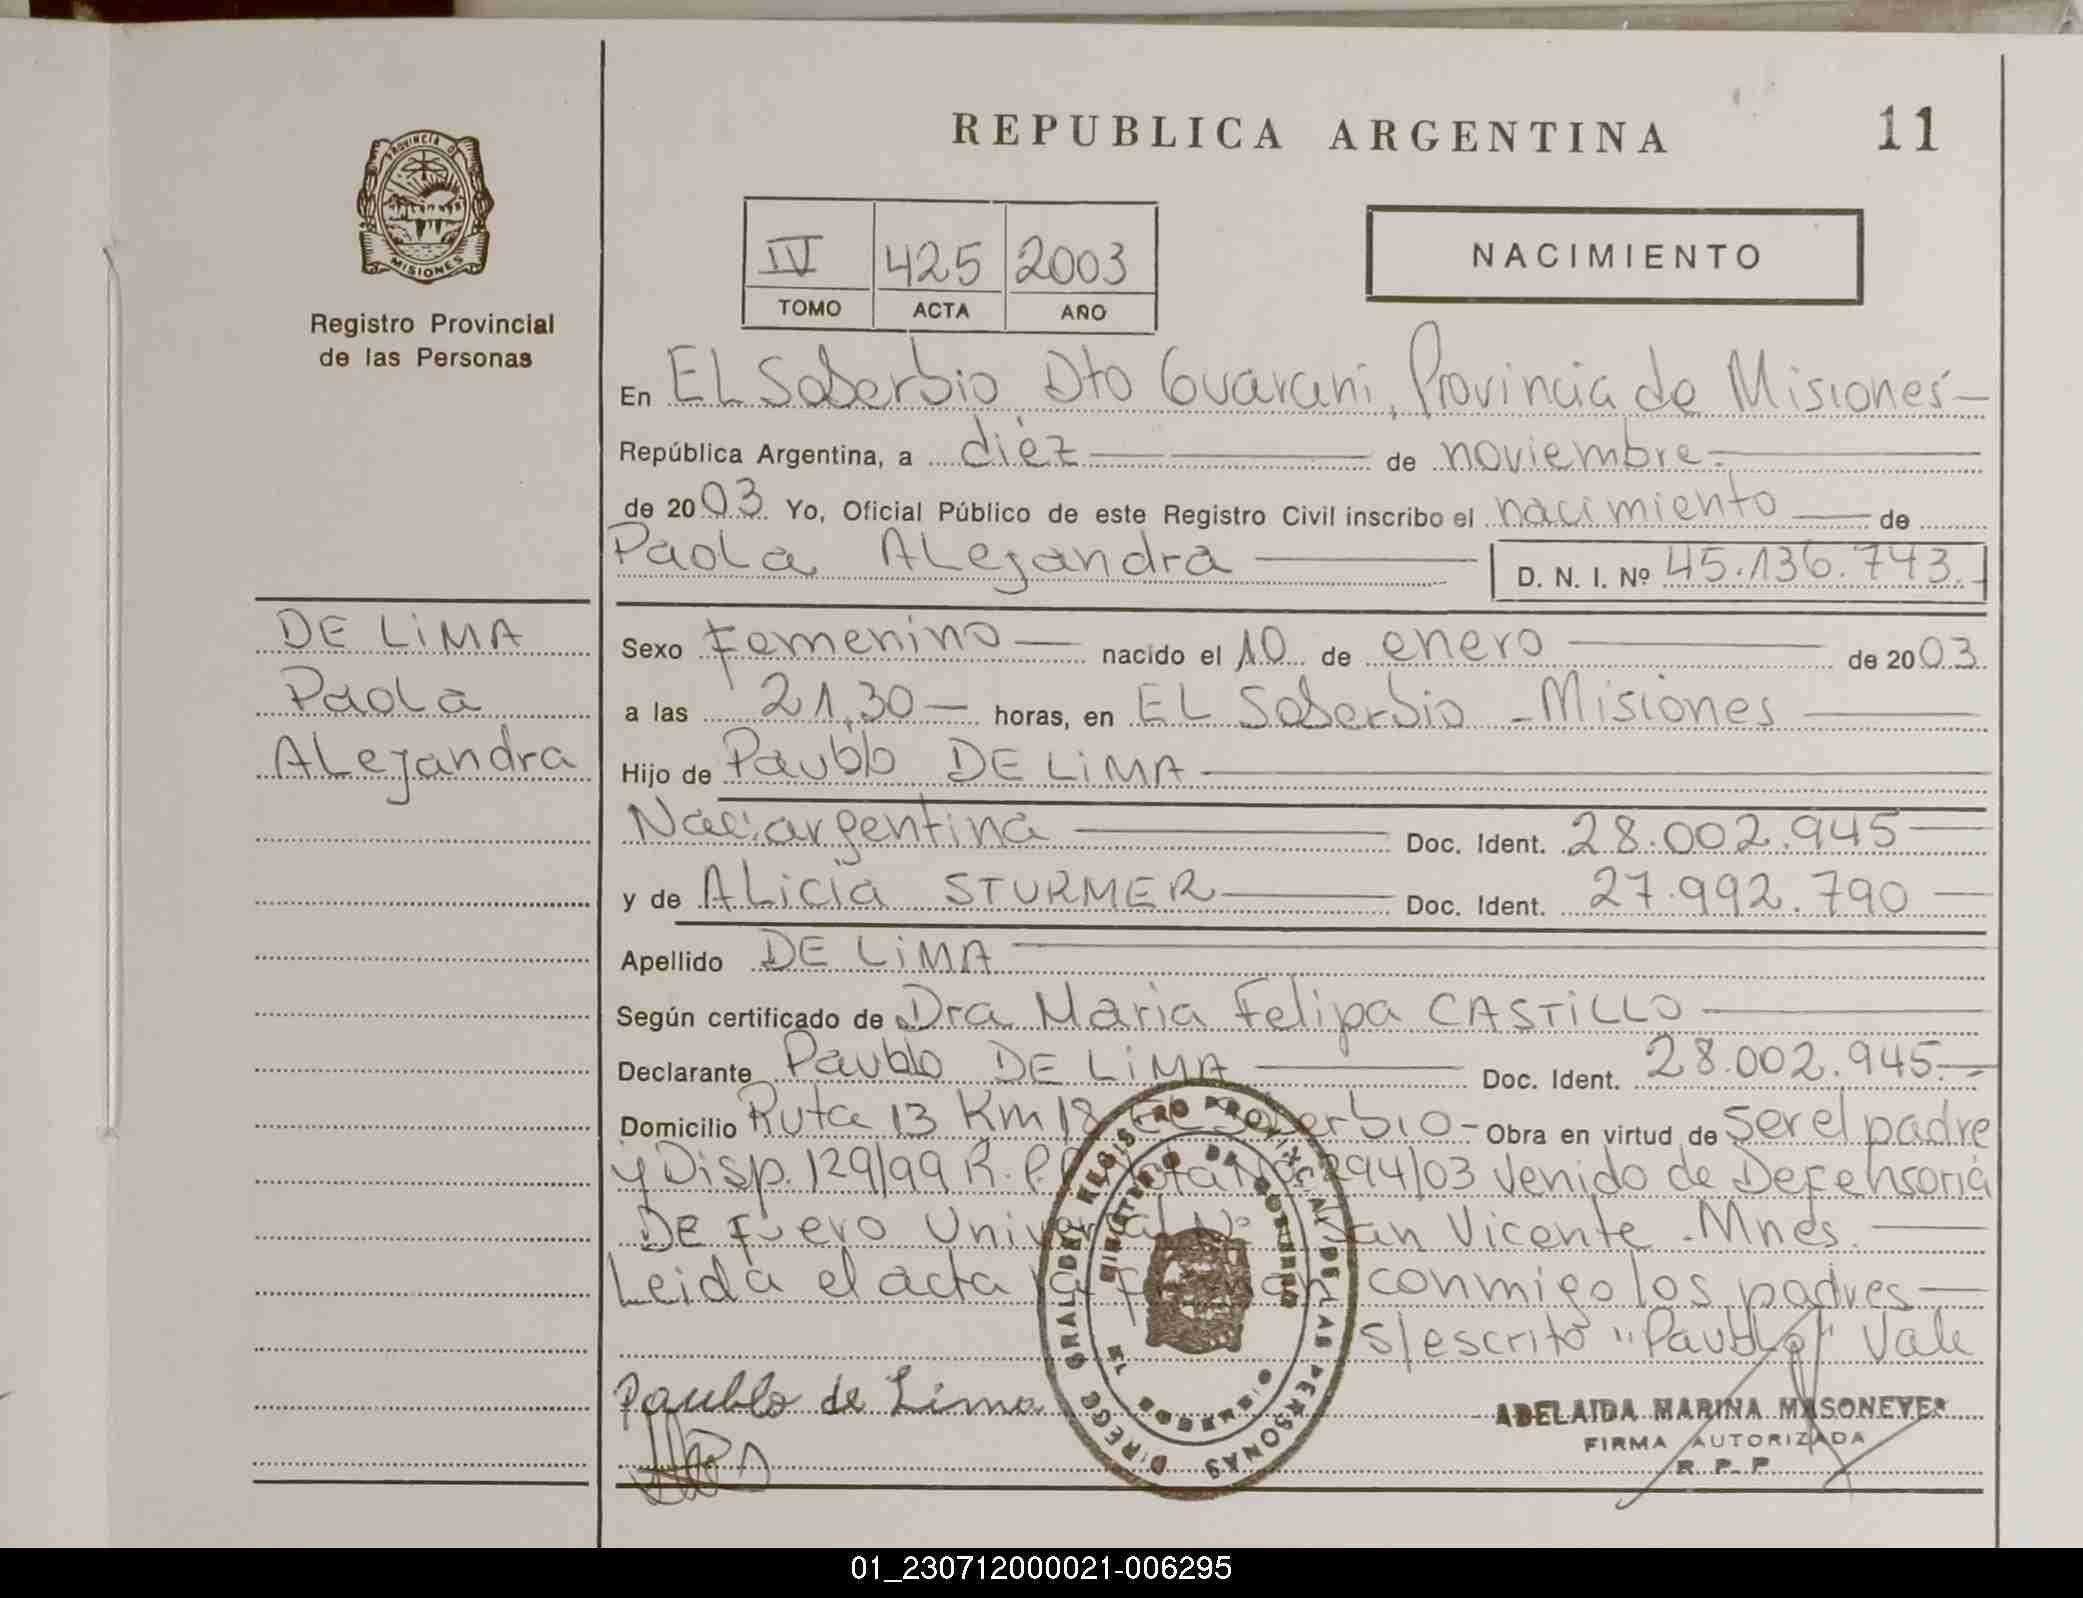 REPUBLICA ARGENTINA
11
PROVINCIA D
MISIONES
Registro Provincial
de las Personas
IV 425 2003
TOMO ACTA AÑO
NACIMIENTO
En EL Soberbio Dto Guarani, Provincia de Misiones
República Argentina, a diéz de noviembre
de 2003 Yo, Oficial Público de este Registro Civil inscribo el nacimiento de
Paola ALejandra D. N. I. Nº 45.136.743
DE LiMA
Paola
ALejandra
Sexo Femenino nacido el 10 de enero de 2003
a las 21,30 horas, en EL Soberbio - Misiones
Hijo de Paublo DE LiMA
Nac: argentina Doc. Ident. 28.002.945
y de ALicia STURMER Doc. Ident. 27.992.790
Apellido DE LiMA
Según certificado de Dra Maria Felipa CASTiLLO
Declarante Paublo DE LiMA Doc. Ident. 28.002.945
Domicilio Ruta 13 Km 18 EL Soberbio - Obra en virtud de ser el padre
y Disp. 129/99 R.P.P. Nota Nº 294/03 venido de Defensoria
De Fuero Universal Nº San Vicente - Mnes.
Leida el acta la firman conmigo los padres
s/escrito "Paublo" Vale
Paublo de Lima
DIRECC GRAL DEL REGISTRO PROVINCIAL DE LAS PERSONAS
MINISTERIO DE GOBIERNO
ADELAIDA MARINA MASONEVES
FIRMA AUTORIZADA
R. P. P.
01_230712000021-006295